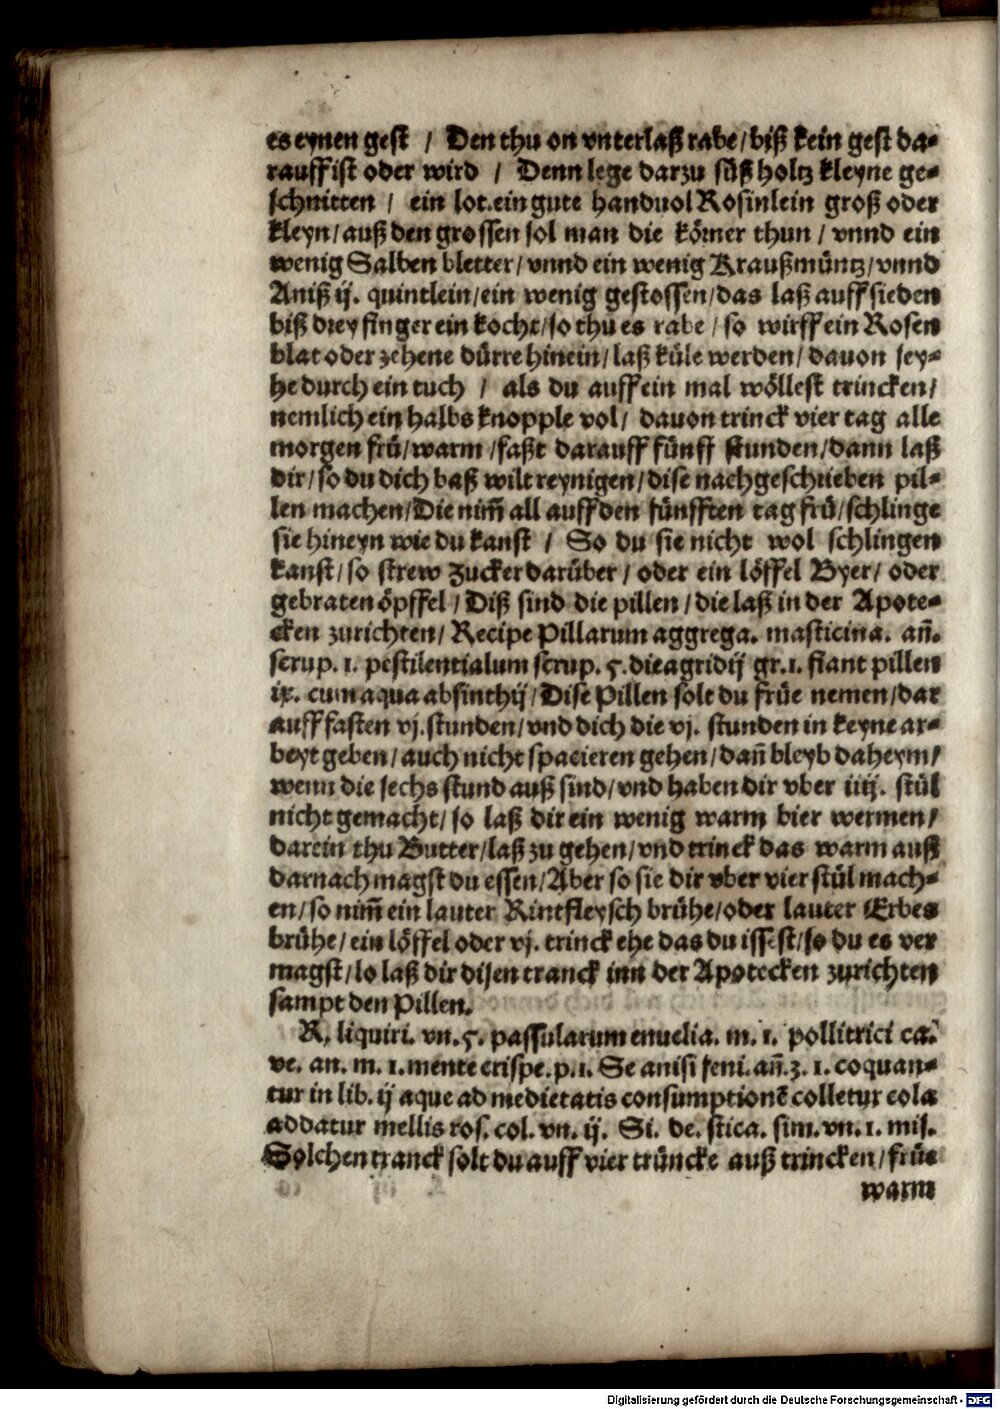 es eynen gest / Den thu on vnterlaß rabe / biß kein gest da-
rauff ist oder wird / Denn lege darzu süß holtz kleyne ge-
schnitten / ein lot. ein gute handuol Rosinlein groß oder
kleyn / auß den grossen sol man die körner thun / vnnd ein
wenig Salben bletter / vnnd ein wenig Kraußmüntz / vnnd
Aniß ij. quintlein / ein wenig gestossen / das laß auff sieden
biß drey finger ein kocht / so thu es rabe / so wirff ein Rosen
blat oder zehene dürre hinein / laß küle werden / dauon sey-
he durch ein tuch / als du auff ein mal wöllest trincken /
nemlich ein halbs knopple vol / dauon trinck vier tag alle
morgen frü / warm / faßt darauff fünff stunden / dann laß
dir / so du dich baß wilt reynigen / dise nachgeschrieben pil-
len machen / Die nim̃ all auff den fünfften tag frü / schlinge
sie hineyn wie du kanst / So du sie nicht wol schlingen
kanst / so strew Zucker darüber / oder ein löffel Byer / oder
gebraten öpffel / Diß sind die pillen / die laß in der Apote-
cken zurichten / Recipe Pillarum aggrega. masticina. añ.
scrup. 1. pestilentialum scrup. 5. dieagridij gr. 1. fiant pillen
ix. cum aqua absinthij / Dise Pillen solt du früe nemen / dar
auff fasten vj. stunden / vnd dich die vj. stunden in keyne ar-
beyt geben / auch nicht spacieren gehen / dañ bleyb daheym /
wenn die sechs stund auß sind / vnd haben dir vber iiij. stül
nicht gemacht / so laß dir ein wenig warm bier wermen /
darein thu Butter / laß zu gehen / vnd trinck das warm auß
darnach magst du essen / Aber so sie dir vber vier stül mach-
en / so nim̃ ein lauter Rintfleysch brühe / oder lauter Erbes
brühe / ein löffel oder vj. trinck ehe das du issest / so du es ver
magst / so laß dir disen tranck inn der Apotecken zurichten
sampt den Pillen.
R. liquiri. vn. 5. passularum enuclia. m. 1. pollitrici ca.
ve. an. m. 1. mente crispe. p. 1. Se anisi feni. añ. ʒ. 1. coquan-
tur in lib. ij aque ad medietatis consumptionē colletur cola
addatur mellis ros. col. vn. ij. Si. de. stica. sim. vn. 1. mis.
Solchen tranck solt du auff vier trüncke auß trincken / früe
warm
Digitalisierung gefördert durch die Deutsche Forschungsgemeinschaft - DFG